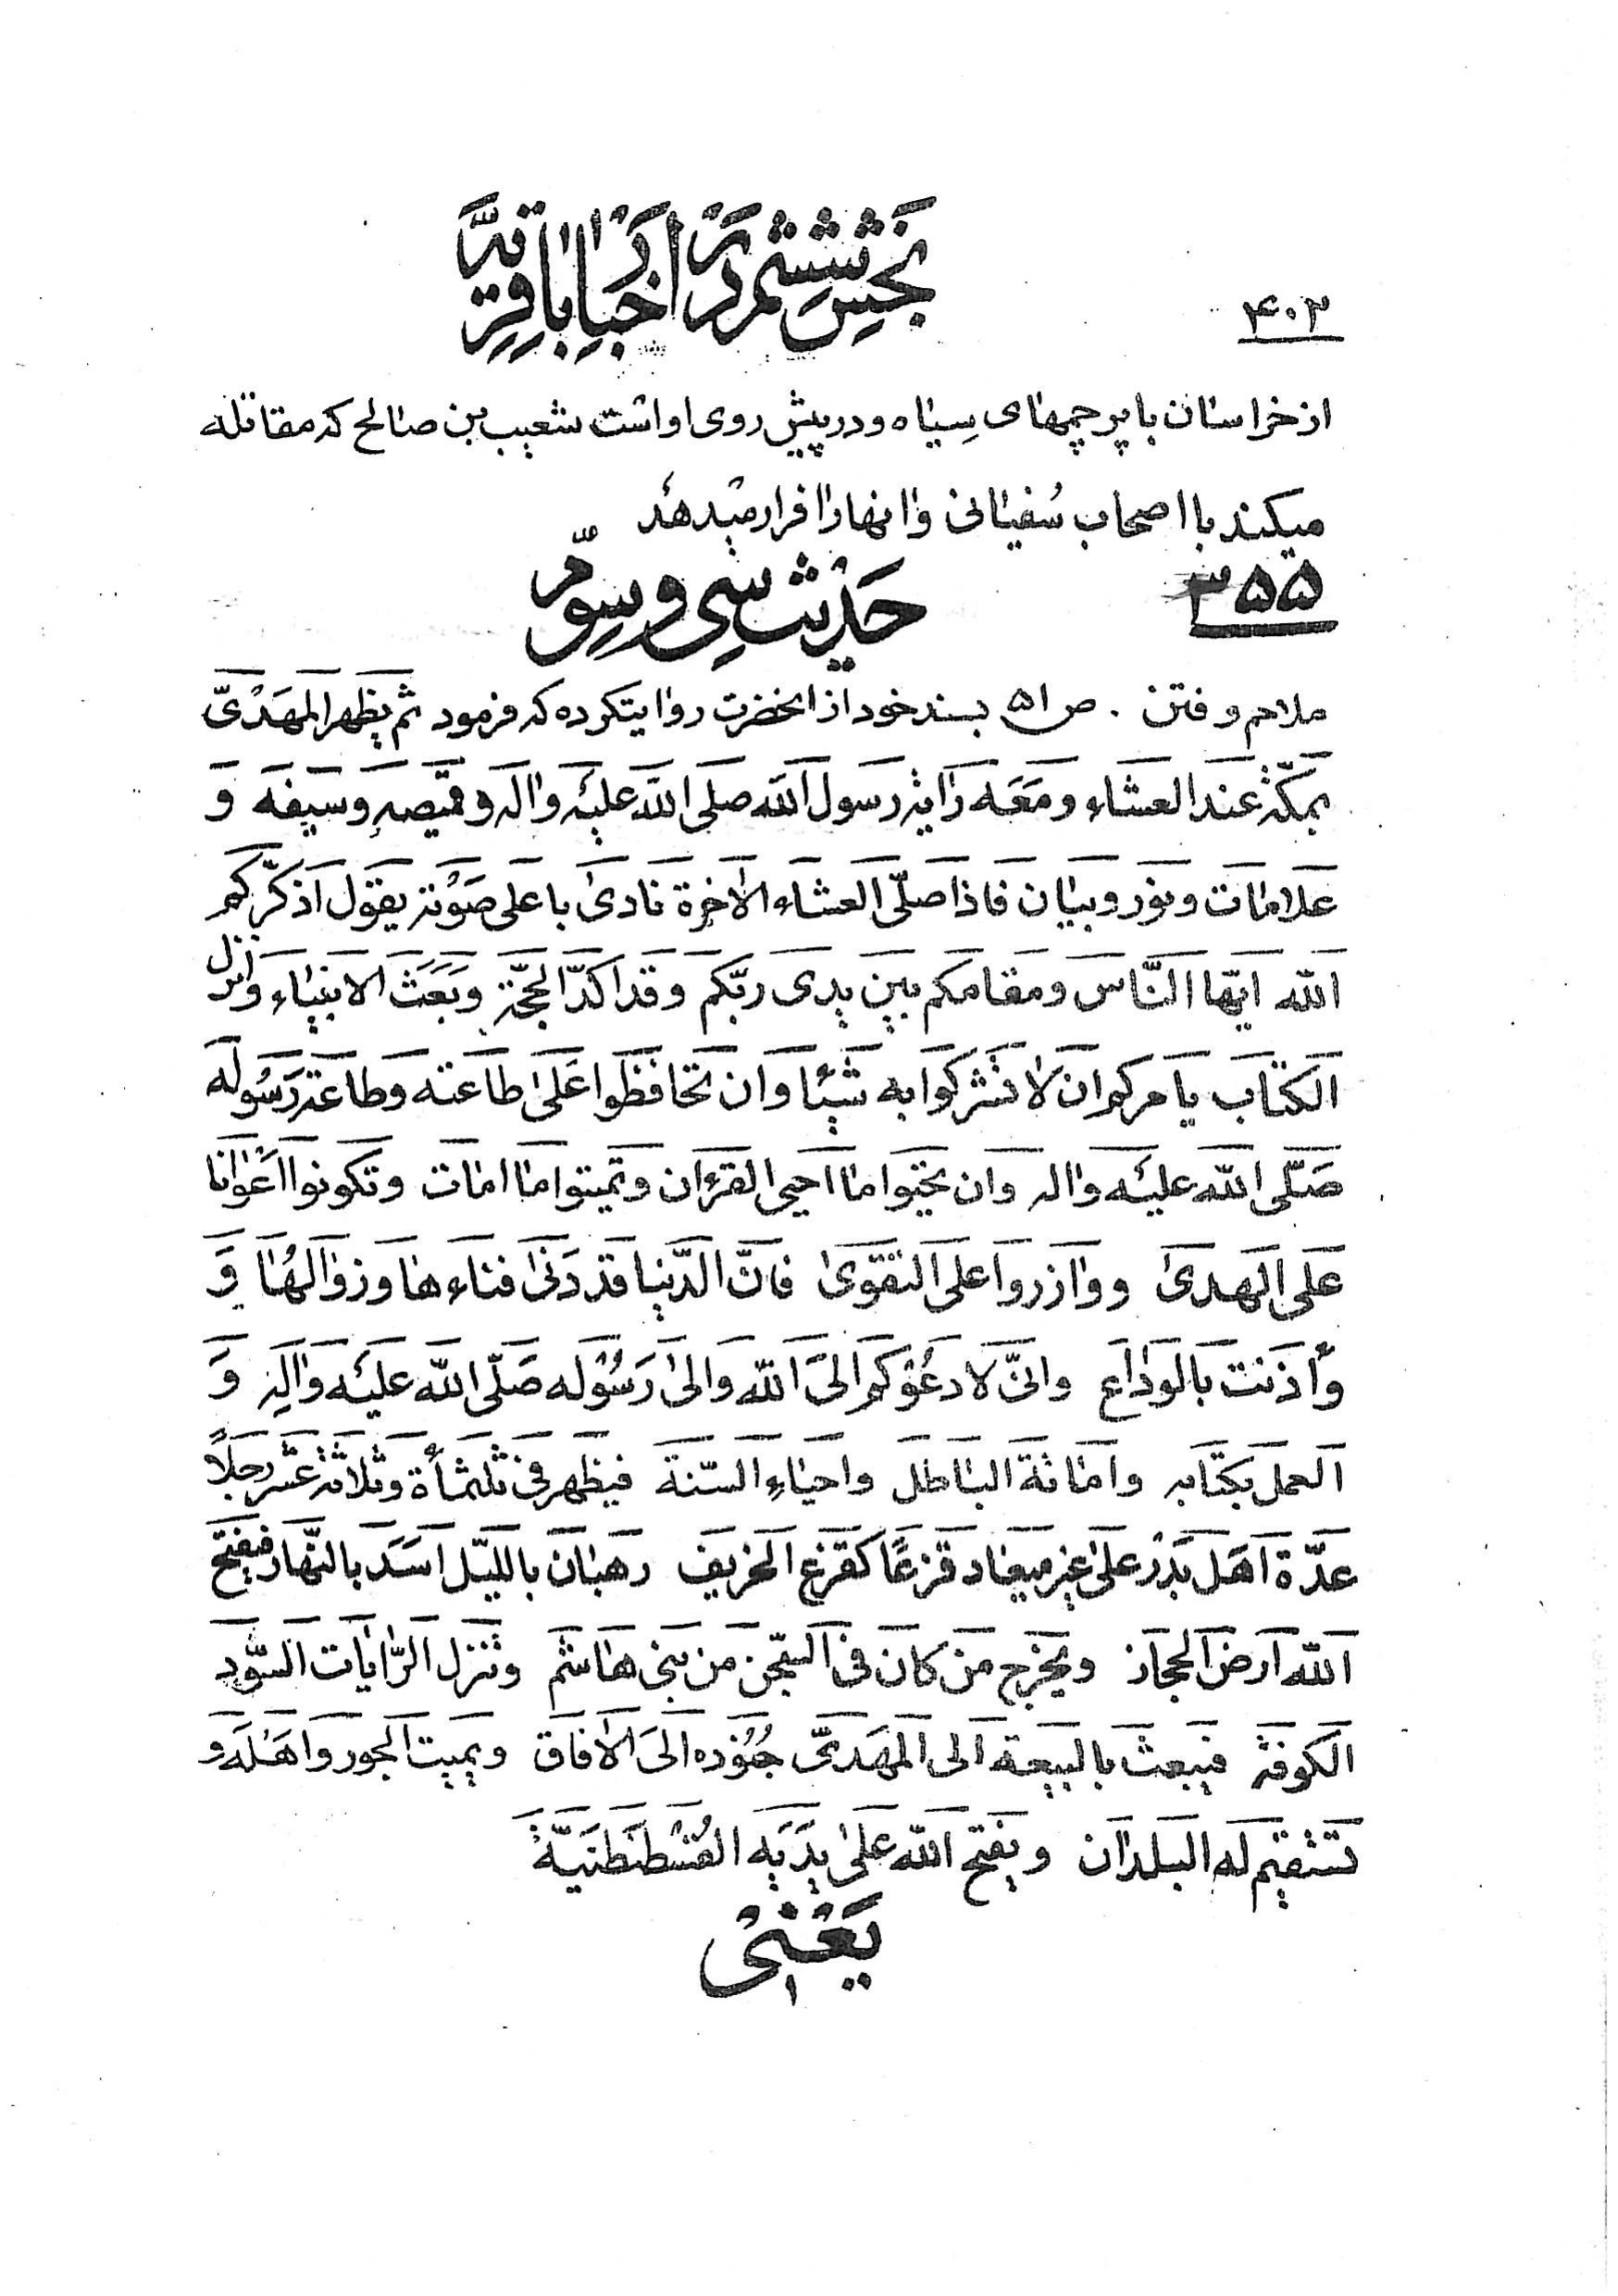 بخش ششم در اخبار باقریّه
۴۰۲
از خراسان با پرچمهای سیاه و در پیش روی او است شعیب بن صالح که مقاتله
میکند با اصحاب سفیانی و انها را فرار میدهد
۳۵۵
حدیث سی و سوّم
ملاحم و فتن . ص ۵۱ بسند خود از انحضرت روایتکرده که فرمود ثم یظهر المهدیّ
بمکّة عند العشاء و معه رایة رسول الله صلی الله علیه واله و قمیصه و سیفه و
علامات و نور و بیان فاذا صلّی العشاء الاخرة نادی باعلی صوته یقول اذکّرکم
الله ایّها النّاس و مقامکم بین یدی ربّکم و قد اکدّ الحجّة و بعث الانبیاء و انزل
الکتاب یامرکم ان لا تشرکوا به شیئا و ان تحافظوا علی طاعته و طاعة رسوله
صلّی الله علیه واله و ان تحیوا ما احیی القرءان و تمیتوا ما امات و تکونوا اعوانا
علی الهدی و وازروا علی التقوی فانّ الدّنیا قد دنی فناءها و زوالها و
واذنت بالوداع و انّی لادعوکم الی الله و الی رسوله صلّی الله علیه واله و
العمل بکتابه و اماتة الباطل و احیاء السّنة فیظهر فی ثلثمأة و ثلاثة عشر رجلاً
عدّة اهل بدر علی غیر میعاد قزعاً کقزع الخریف رهبان باللیل اسد بالنّهار فیفتح
الله ارض الحجاز و یخرج من کان فی السّجن من بنی هاشم و تنزل الرّایات السّود
الکوفة فیبعث بالبیعة الی المهدیّ جنوده الی الافاق و یمیت الجور و اهله و
تستقیم له البلدان و یفتح الله علی یدیه القسطنطنیّة
یعنی